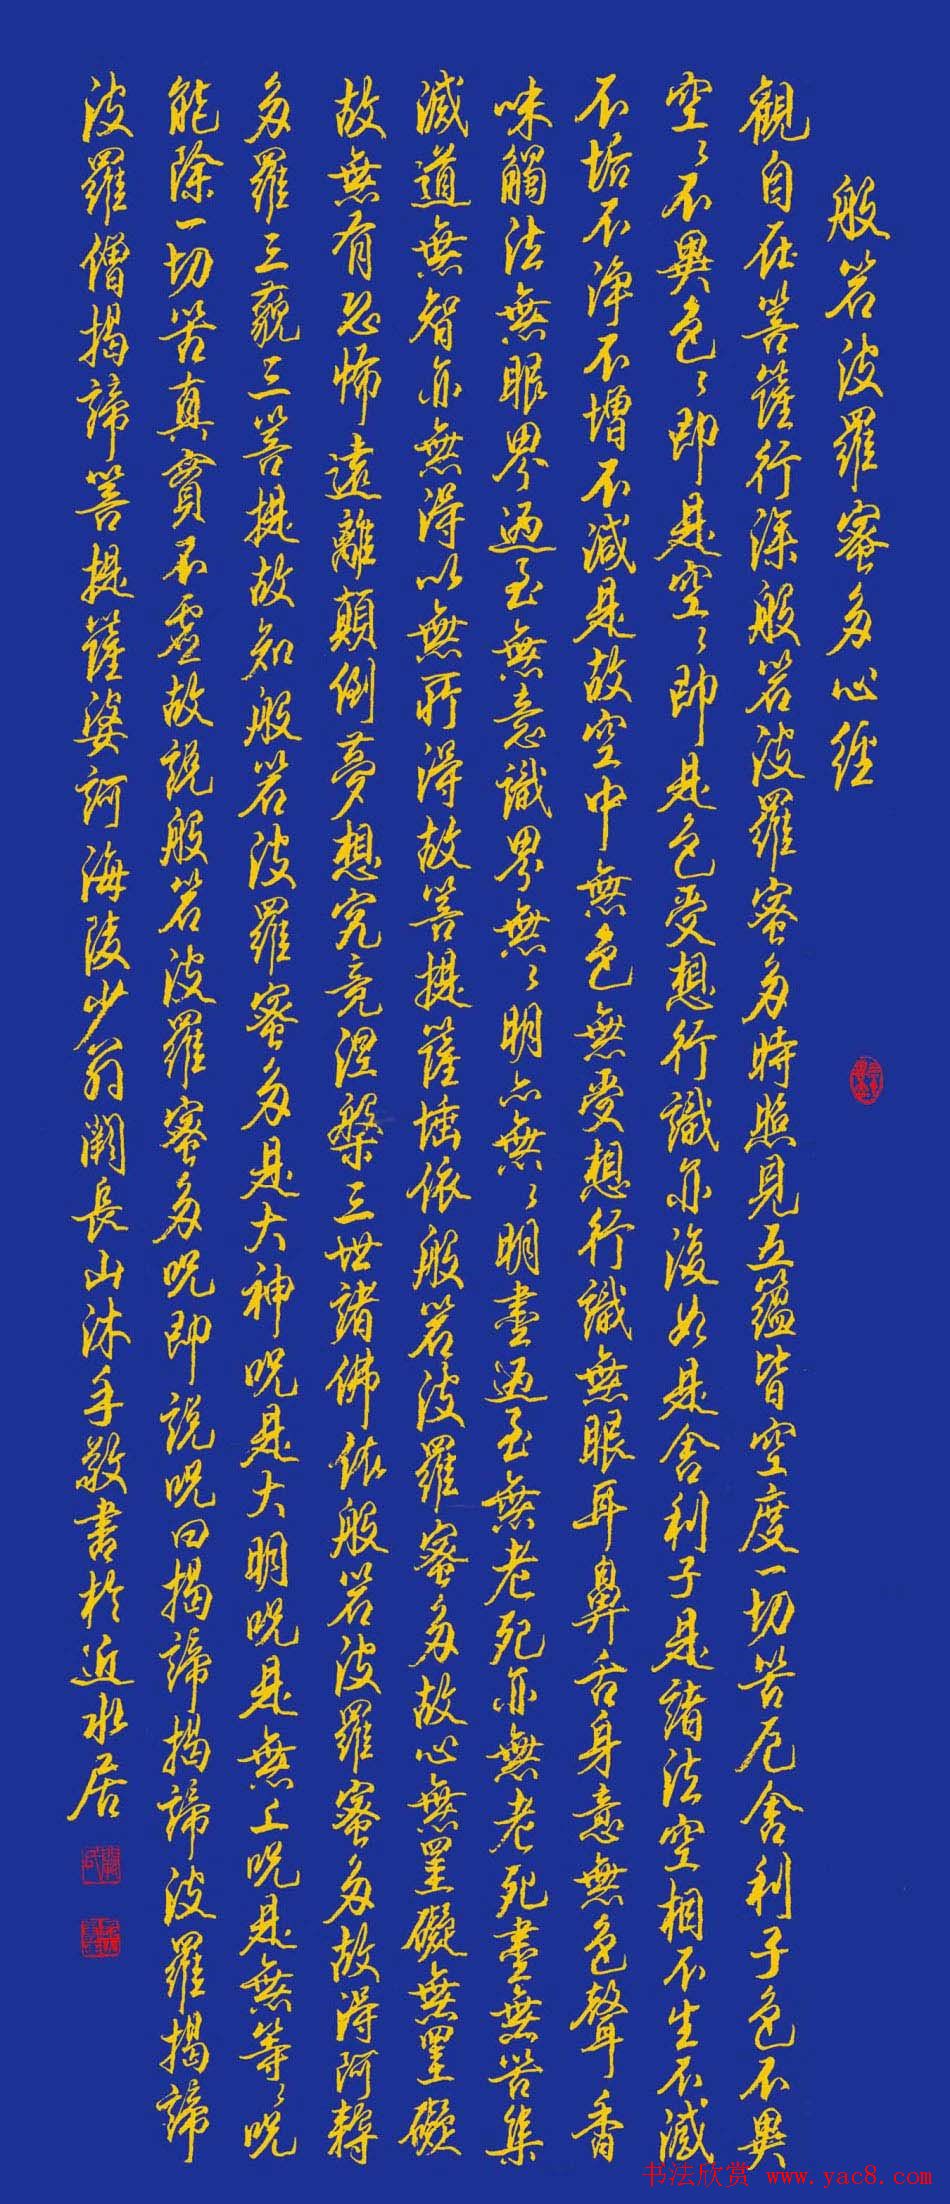 般若波羅蜜多心經
觀自在菩薩行深般若波羅蜜多時照見五蘊皆空度一切苦厄舍利子色不異
空々不異色々即是空々即是色受想行識亦復如是舍利子是諸法空相不生不滅
不垢不淨不增不減是故空中無色無受想行識無眼耳鼻舌身意無色聲香
味觸法無眼界迺至無意識界無々明亦無々明盡迺至無老死亦無老死盡無苦集
滅道無智亦無得以無所得故菩提薩埵依般若波羅蜜多故心無罣礙無罣礙
故無有恐怖遠離顛倒夢想究竟涅槃三世諸佛依般若波羅蜜多故得阿耨
多羅三藐三菩提故知般若波羅蜜多是大神咒是大明咒是無上咒是無等々咒
能除一切苦真實不虛故說般若波羅蜜多咒即說咒曰揭諦揭諦波羅揭諦
波羅僧揭諦菩提薩婆訶海陵少翁闞長山沐手敬書於近水居
书法欣赏 www.yac8.com